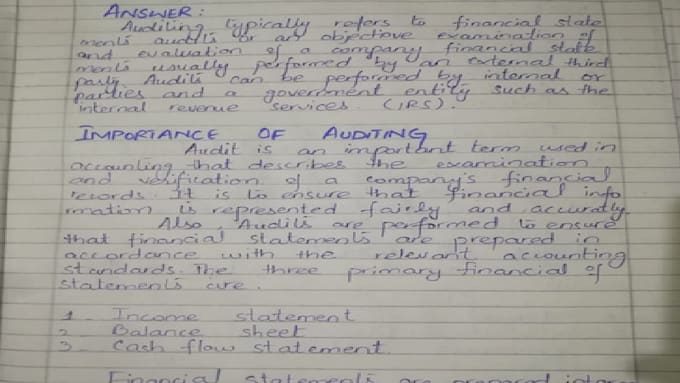 ANSWER:
Auditing typically refers to financial state
ments audits or an objective examination of
and evaluation of a company financial state
ments usually performed by an external third
party. Audits can be performed by internal or
parties and a government entity such as the
internal revenue services (IRS).
IMPORTANCE OF AUDITING
Audit is an important term used in
accounting that describes the examination
and verification of a company's financial
records. It is to ensure that financial info
rmation is represented fairly and accuratly.
Also, Audits are performed to ensure
that financial statements are prepared in
accordance with the relevant accounting
standards. The three primary financial of
statements are.
1- Income statement
2- Balance sheet
3- Cash flow statement
Financial statements are prepared